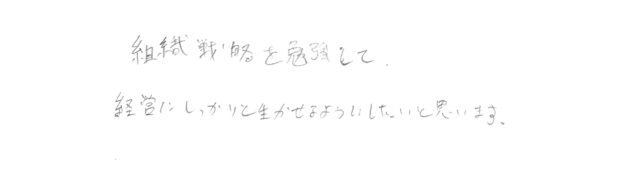 組織戦略を勉強して、
経営にしっかりと生かせるようにしたいと思います。